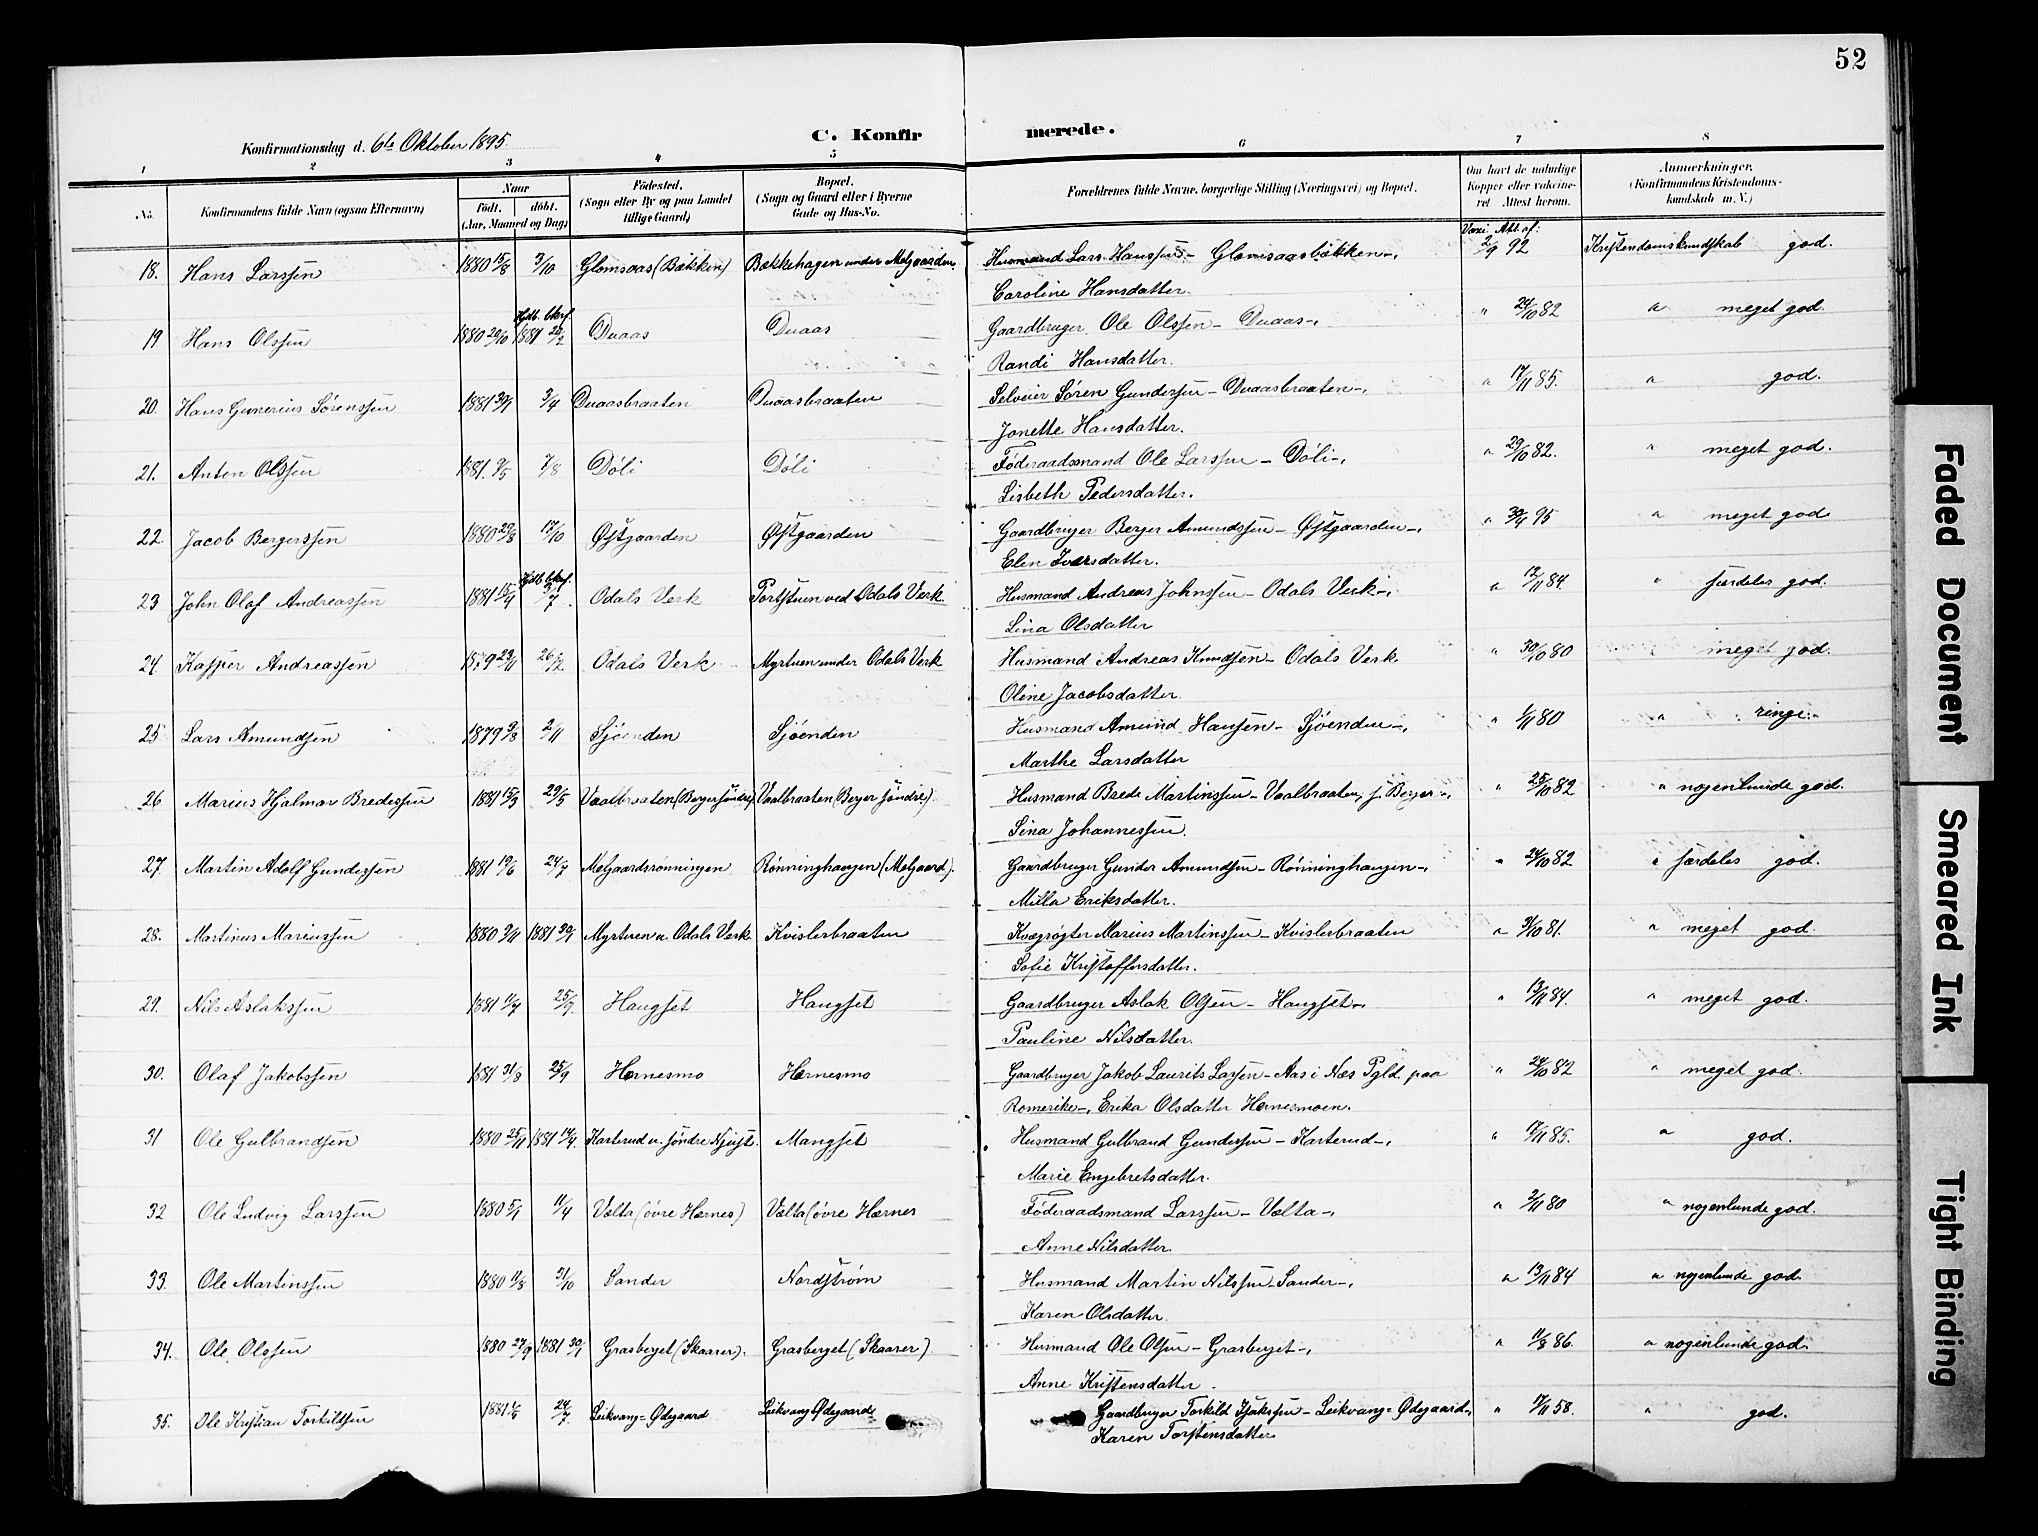 52
Konfirmationsdag d. 6te Oktober 1895.
C. Konfirmerede.
1 2 3 4 5 6 7 8
No. Konfirmandens fulde Navn (ogsaa Efternavn) Naar født. døbt. (Aar, Maaned og Dag) Fødested. (Sogn eller By og paa Landet tillige Gaard) Bopæl. (Sogn og Gaard eller i Byerne Gade og Hus-No. Forældrenes fulde Navne, borgerlige Stilling (Næringsvei) og Bopæl. Om havt de naturlige Kopper eller vaccineret Attest herom. Anmærkninger. (Konfirmandens Kristendomskundskab m. V.)
Vacc. Att. af:
18. Hans Larssen 1880 15/8 3/10 Glomsaas (Bækken) Bækkehagen under Melgaarden Husmand Lars Hanssen - Glomsaasbækken -, 2/9 92 Kristendomskundskab god.
Caroline Hansdatter.
Hjdb. bkrf.
19 Hans Olssen 1880 20/10 1881 20/2 Duaas Duaas Gaardbruger Ole Olssen - Duaas -, " 24/10 82 " meget god.
Randi Hansdatter.
20. Hans Gunerius Sørenssen 1881 30/1 3/4 Duaasbraaten Duaasbraaten Selveier Søren Gunderssen - Duaasbraaten -, " 17/11 85. " god.
Jonette Hansdatter.
21. Anton Olssen 1881. 9/5 7/8 Døli Døli Føderaadsmand Ole Larssen - Døli -, " 29/10 82. " meget god.
Lisbeth Pedersdatter.
22. Jacob Bergerssen 1880 29/8 17/10 Østgaarden Østgaarden Gaardbruger Berger Amundssen - Østgaarden -, " 30/4 95 " meget god
Elen Iversdatter.
Hjdb. bkrf.
23 John Olaf Andreassen 1881 15/4 3/7. Odals Verk Portstuen ved Odals Verk. Husmand Andreas Johnssen - Odals Verk -, " 12/11 84. " særdeles god.
Lina Olsdatter
24. Kasper Andreassen 1879 29/11 26/12 Odals Verk Myrtuen under Odals Verk Husmand Andreas Knudssen - Odals Verk " 30/10 80 " meget god.
Oline Jacobsdatter.
25 Lars Amundsen 1879 9/8 2/11 Sjøenden Sjøenden Husmand Amund Hansen - Sjøenden -, " 1/11 80 " ringe.
Marthe Larsdatter
26 Marius Hjalmar Bredessen 1881 15/3 29/5 Vaalbraaten (Berger søndre) Vaalbraaten (Berger søndre). Husmand Brede Martinssen - Vaalbraaten, s. Berger -, " 25/10 82 " nogenlunde god.
Sina Johannessen.
27. Martin Adolf Gunderssen 1881 19/6 24/7 Melgaardsrønningen Rønninghaugen (Melgaard). Gaardbruger Gunder Amundssen - Rønninghaugen -, " 24/10 82 " særdeles god.
Milla Eriksdatter.
28. Martinus Mariussen 1880 3/11 1881 30/1 Myrtuen u. Odals Verk. Kvislerbraaten Kvægrøgter Marius Martinssen - Kvislerbraaten " 31/10 81. " meget god.
Sofie Kristoffersdatter.
29. Nils Aslakssen 1881 11/7 25/9. Haugset Haugset Gaardbruger Aslak Olsen - Haugset -, " 13/11 84. " meget god.
Pauline Nilsdatter.
30. Olaf Jakobssen 1881 31/8 25/9 Hernesmo Hernesmo Gaardbruger Jakob Laurits Larsen - Aas i Næs Pgld. paa " 24/10 82 " meget god.
Romerike -, Erika Olsdatter Hernesmoen.
31 Ole Gulbrandsen 1880 25/11 1881 14/4 Karterud u. søndre Njust. Mangset Husmand Gulbrand Gunderssen - Karterud -, " 17/11 85. " god.
Marie Engebretsdatter.
32 Ole Ludvig Larssen 1880 5/1 11/4 Vælta (øvre Hærnes) Vælta (øvre Hærnes Føderaadsmand Larssen - Vælta -, " 2/11 80 " nogenlunde god.
Anne Nilsdatter.
33. Ole Martinssen 1880 11/8 31/10 Sander Nordstrøm Husmand Martin Nilssen - Sander -, " 13/11 84 " nogenlunde god.
Karen Olsdatter.
34. Ole Olssen 1880 27/9 1881 30/1 Grasberget (Skaarer). Grasberget (Skaarer) Husmand Ole Olsen - Grasberget -, " 11/8 86. " nogenlunde god.
Anne Kristensdatter.
35. Ole Kristian Torkildsen 1881 24/7 Leikvang-Ødegaard Leikvang Ødegaard Gaardbruger Torkild Isaksen - Leikvang-Ødegaard -, " 17/11 58. " god.
Karen Torstensdatter
Faded Document
Smeared Ink
Tight Binding